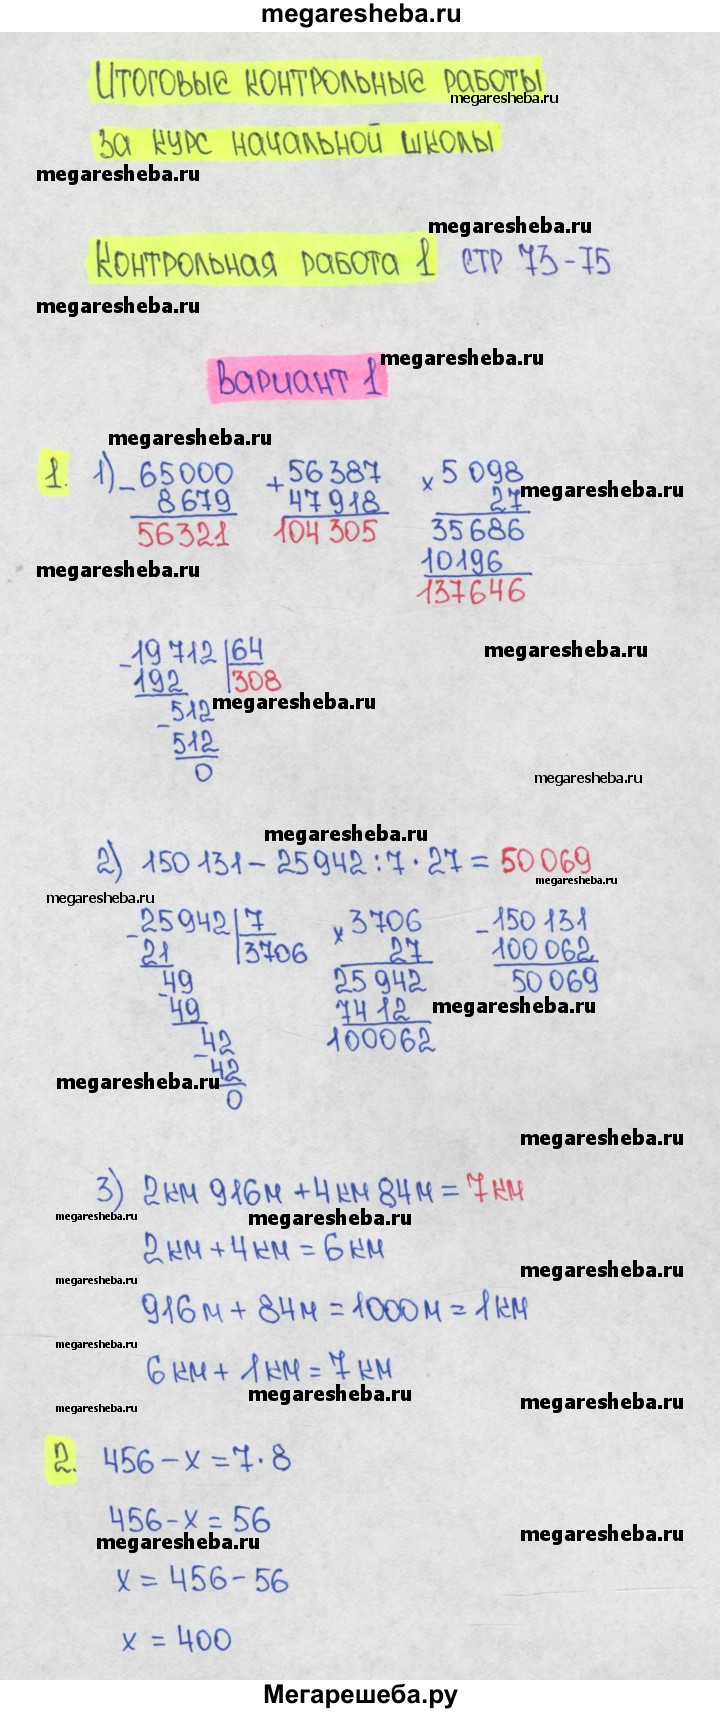 megaresheba.ru
Итоговые контрольные работы
megaresheba.ru
за курс начальной школы
megaresheba.ru
megaresheba.ru
Контрольная работа 1 стр 73-75
megaresheba.ru
megaresheba.ru
Вариант 1
megaresheba.ru
1. 1) - 65000 + 56387 x 5 098
8679 47918 27
megaresheba.ru
56321 104 305 35686
10196
megaresheba.ru
137646
- 19 712 | 64
megaresheba.ru
192 308
megaresheba.ru
- 512
512
0
megaresheba.ru
megaresheba.ru
2) 150 131 - 25942 : 7 · 27 = 50 069
megaresheba.ru
megaresheba.ru
- 25942 | 7 x 3706 - 150 131
21 3706 27 100 062
- 49 25 942 50 069
49 74 12
megaresheba.ru
- 42 100062
42
megaresheba.ru
0
megaresheba.ru
3) 2 км 916 м + 4 км 84 м = 7 км
megaresheba.ru
megaresheba.ru
2 км + 4 км = 6 км
megaresheba.ru
megaresheba.ru
916 м + 84 м = 1000 м = 1 км
megaresheba.ru
6 км + 1 км = 7 км
megaresheba.ru
megaresheba.ru
megaresheba.ru
2. 456 - x = 7 · 8
456 - x = 56
megaresheba.ru
megaresheba.ru
x = 456 - 56
x = 400
Мегарешеба.ру